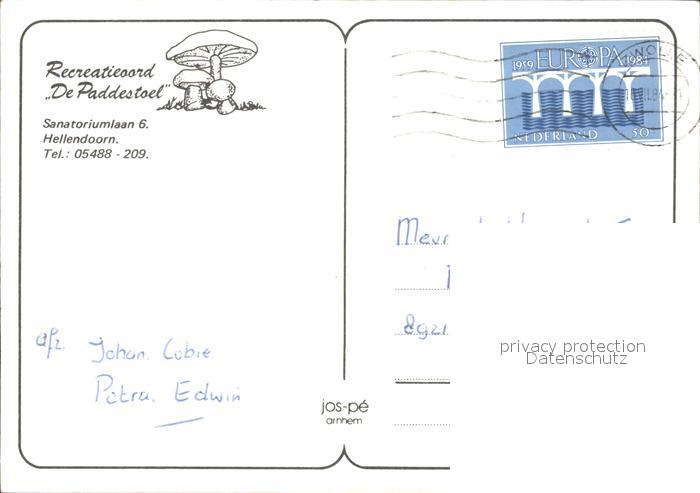 Recreatieoord
„De Paddestoel"
Sanatoriumlaan 6.
Hellendoorn.
Tel.: 05488 - 209.
1959 EUROPA 1984
NEDERLAND 50
Mevr
8921
privacy protection
Datenschutz
afz. Johan. Cobie
Petra. Edwin
jos-pé
arnhem